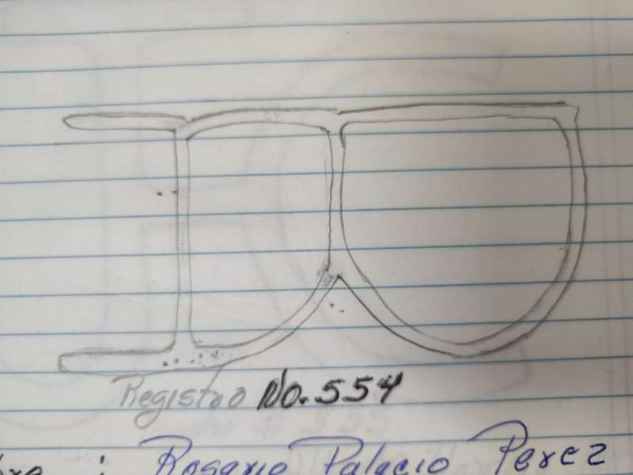 Registro No. 554
: Rosario Palacio Perez